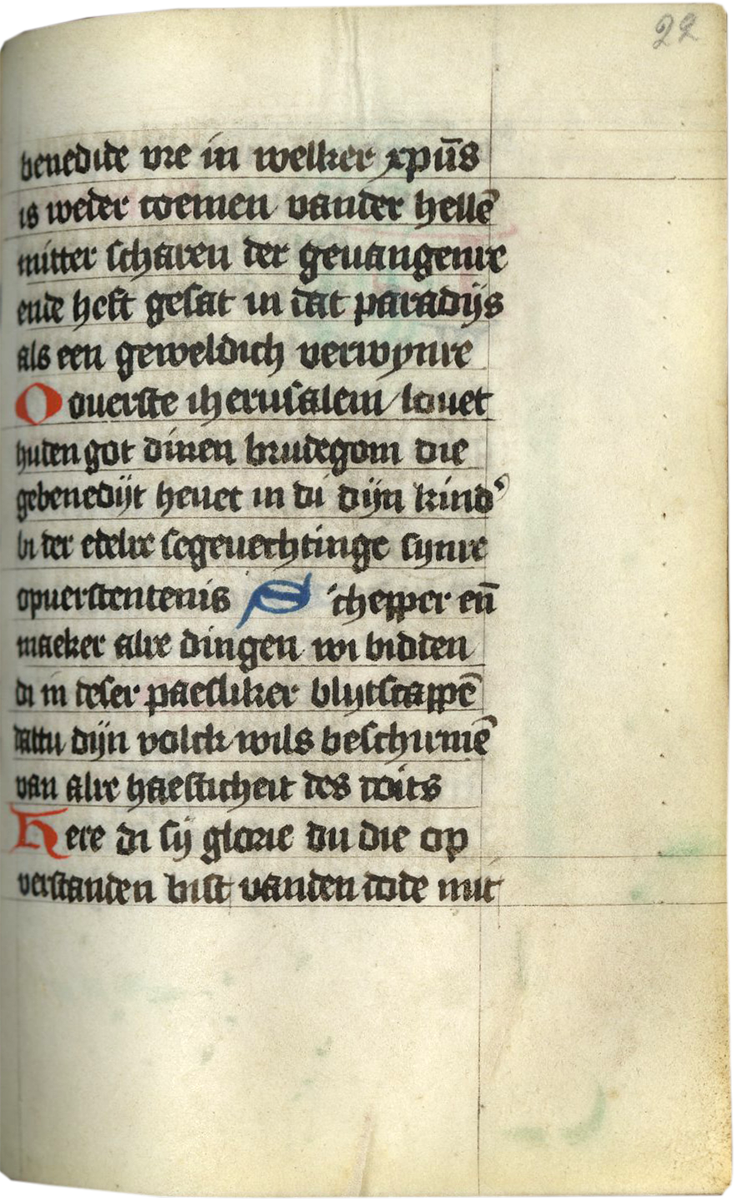 22
benedide vre in welker xpūs
is weder comen vander hellē
mitter scharen der geuangenre
ende heft gesat in dat paradijs
als een geweldich verwynre
O ouerste iherusalem louet
huden got dinen brudegom die
gebenedijt heuet in di dijn kind'
bi der edelre segeuechtinge synre
opuerstentenis Schepper en̄
maeker alre dingen wi bidden
di in deser paesliker blijtscappē
dattu dijn volck wils beschirmē
van alre haesticheit des doits
Here di sij glorie du die op
verstanden bist vanden dode mit